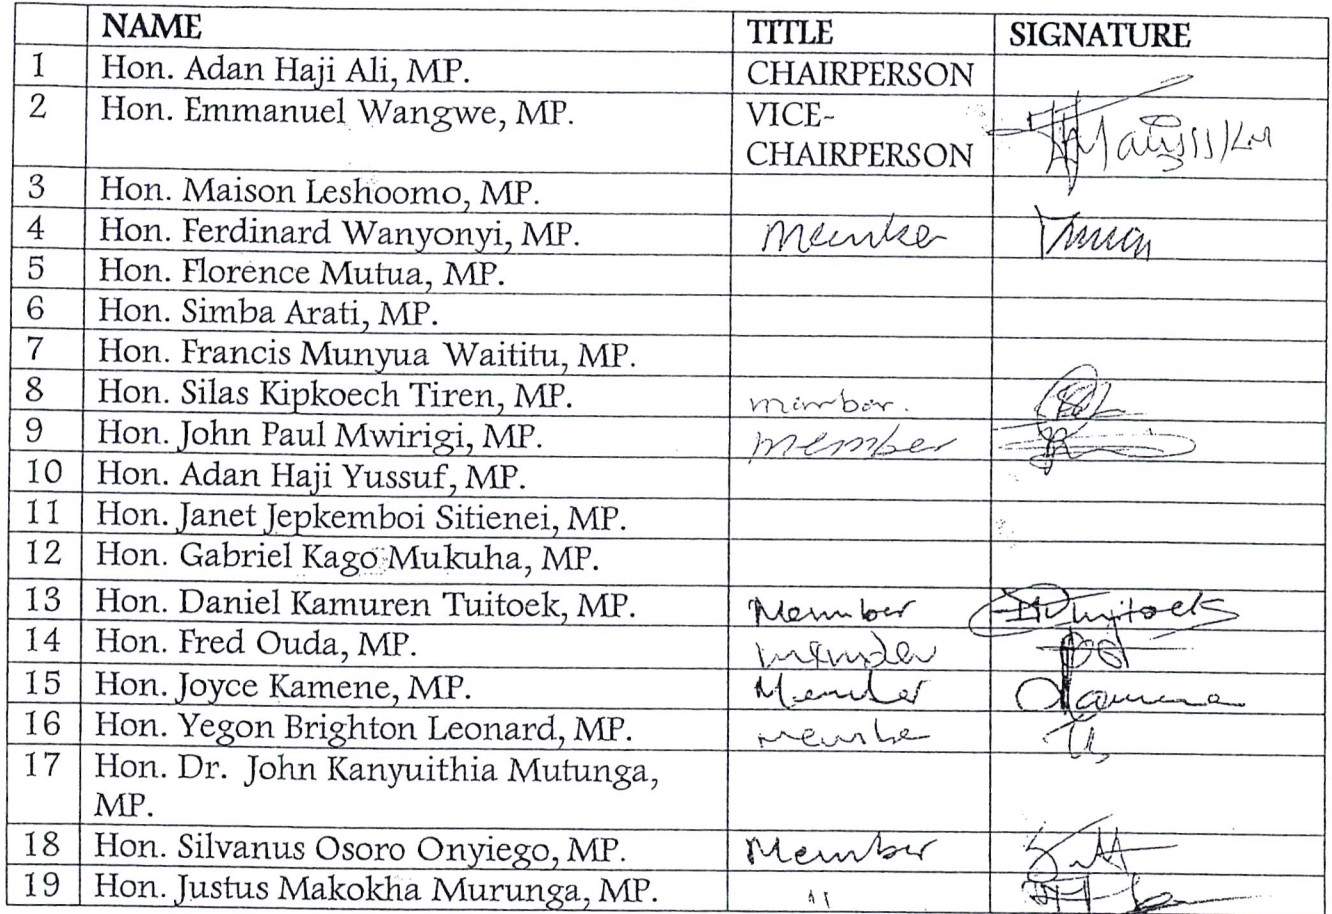 NAME TITLE SIGNATURE
1 Hon. Adan Haji Ali, MP. CHAIRPERSON
2 Hon. Emmanuel Wangwe, MP. VICE-
CHAIRPERSON
3 Hon. Maison Leshoomo, MP.
4 Hon. Ferdinard Wanyonyi, MP. Member
5 Hon. Florence Mutua, MP.
6 Hon. Simba Arati, MP.
7 Hon. Francis Munyua Waititu, MP.
8 Hon. Silas Kipkoech Tiren, MP. member.
9 Hon. John Paul Mwirigi, MP. Member
10 Hon. Adan Haji Yussuf, MP.
11 Hon. Janet Jepkemboi Sitienei, MP.
12 Hon. Gabriel Kago Mukuha, MP.
13 Hon. Daniel Kamuren Tuitoek, MP. Member
14 Hon. Fred Ouda, MP. member
15 Hon. Joyce Kamene, MP. Member
16 Hon. Yegon Brighton Leonard, MP. member
17 Hon. Dr. John Kanyuithia Mutunga,
MP.
18 Hon. Silvanus Osoro Onyiego, MP. Member
19 Hon. Justus Makokha Murunga, MP. "